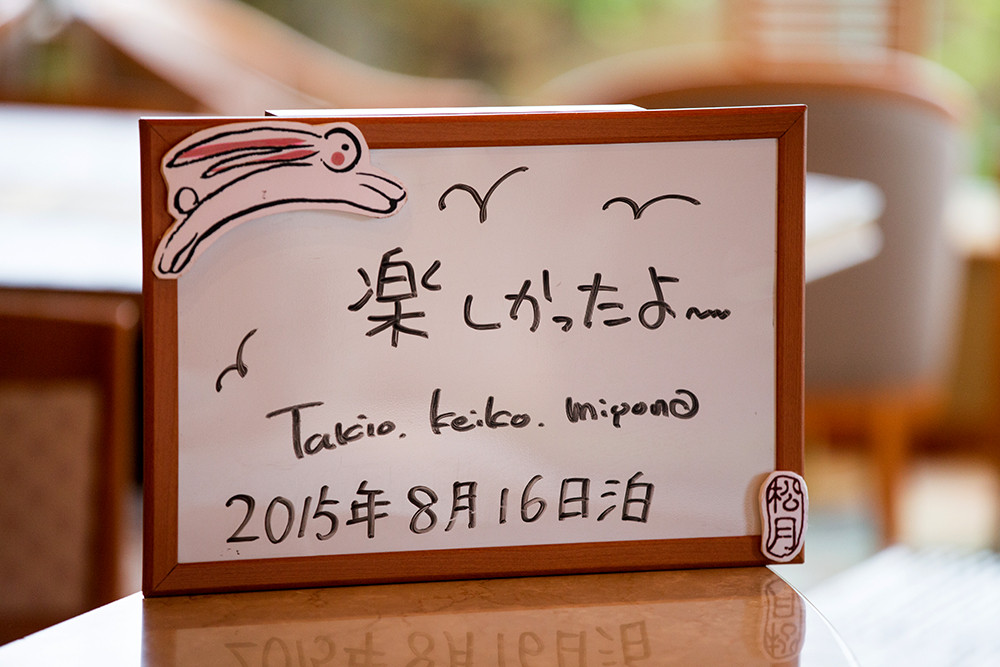 楽しかったよ〜
Takio. keiko. mipona
2015年8月16日泊
松月